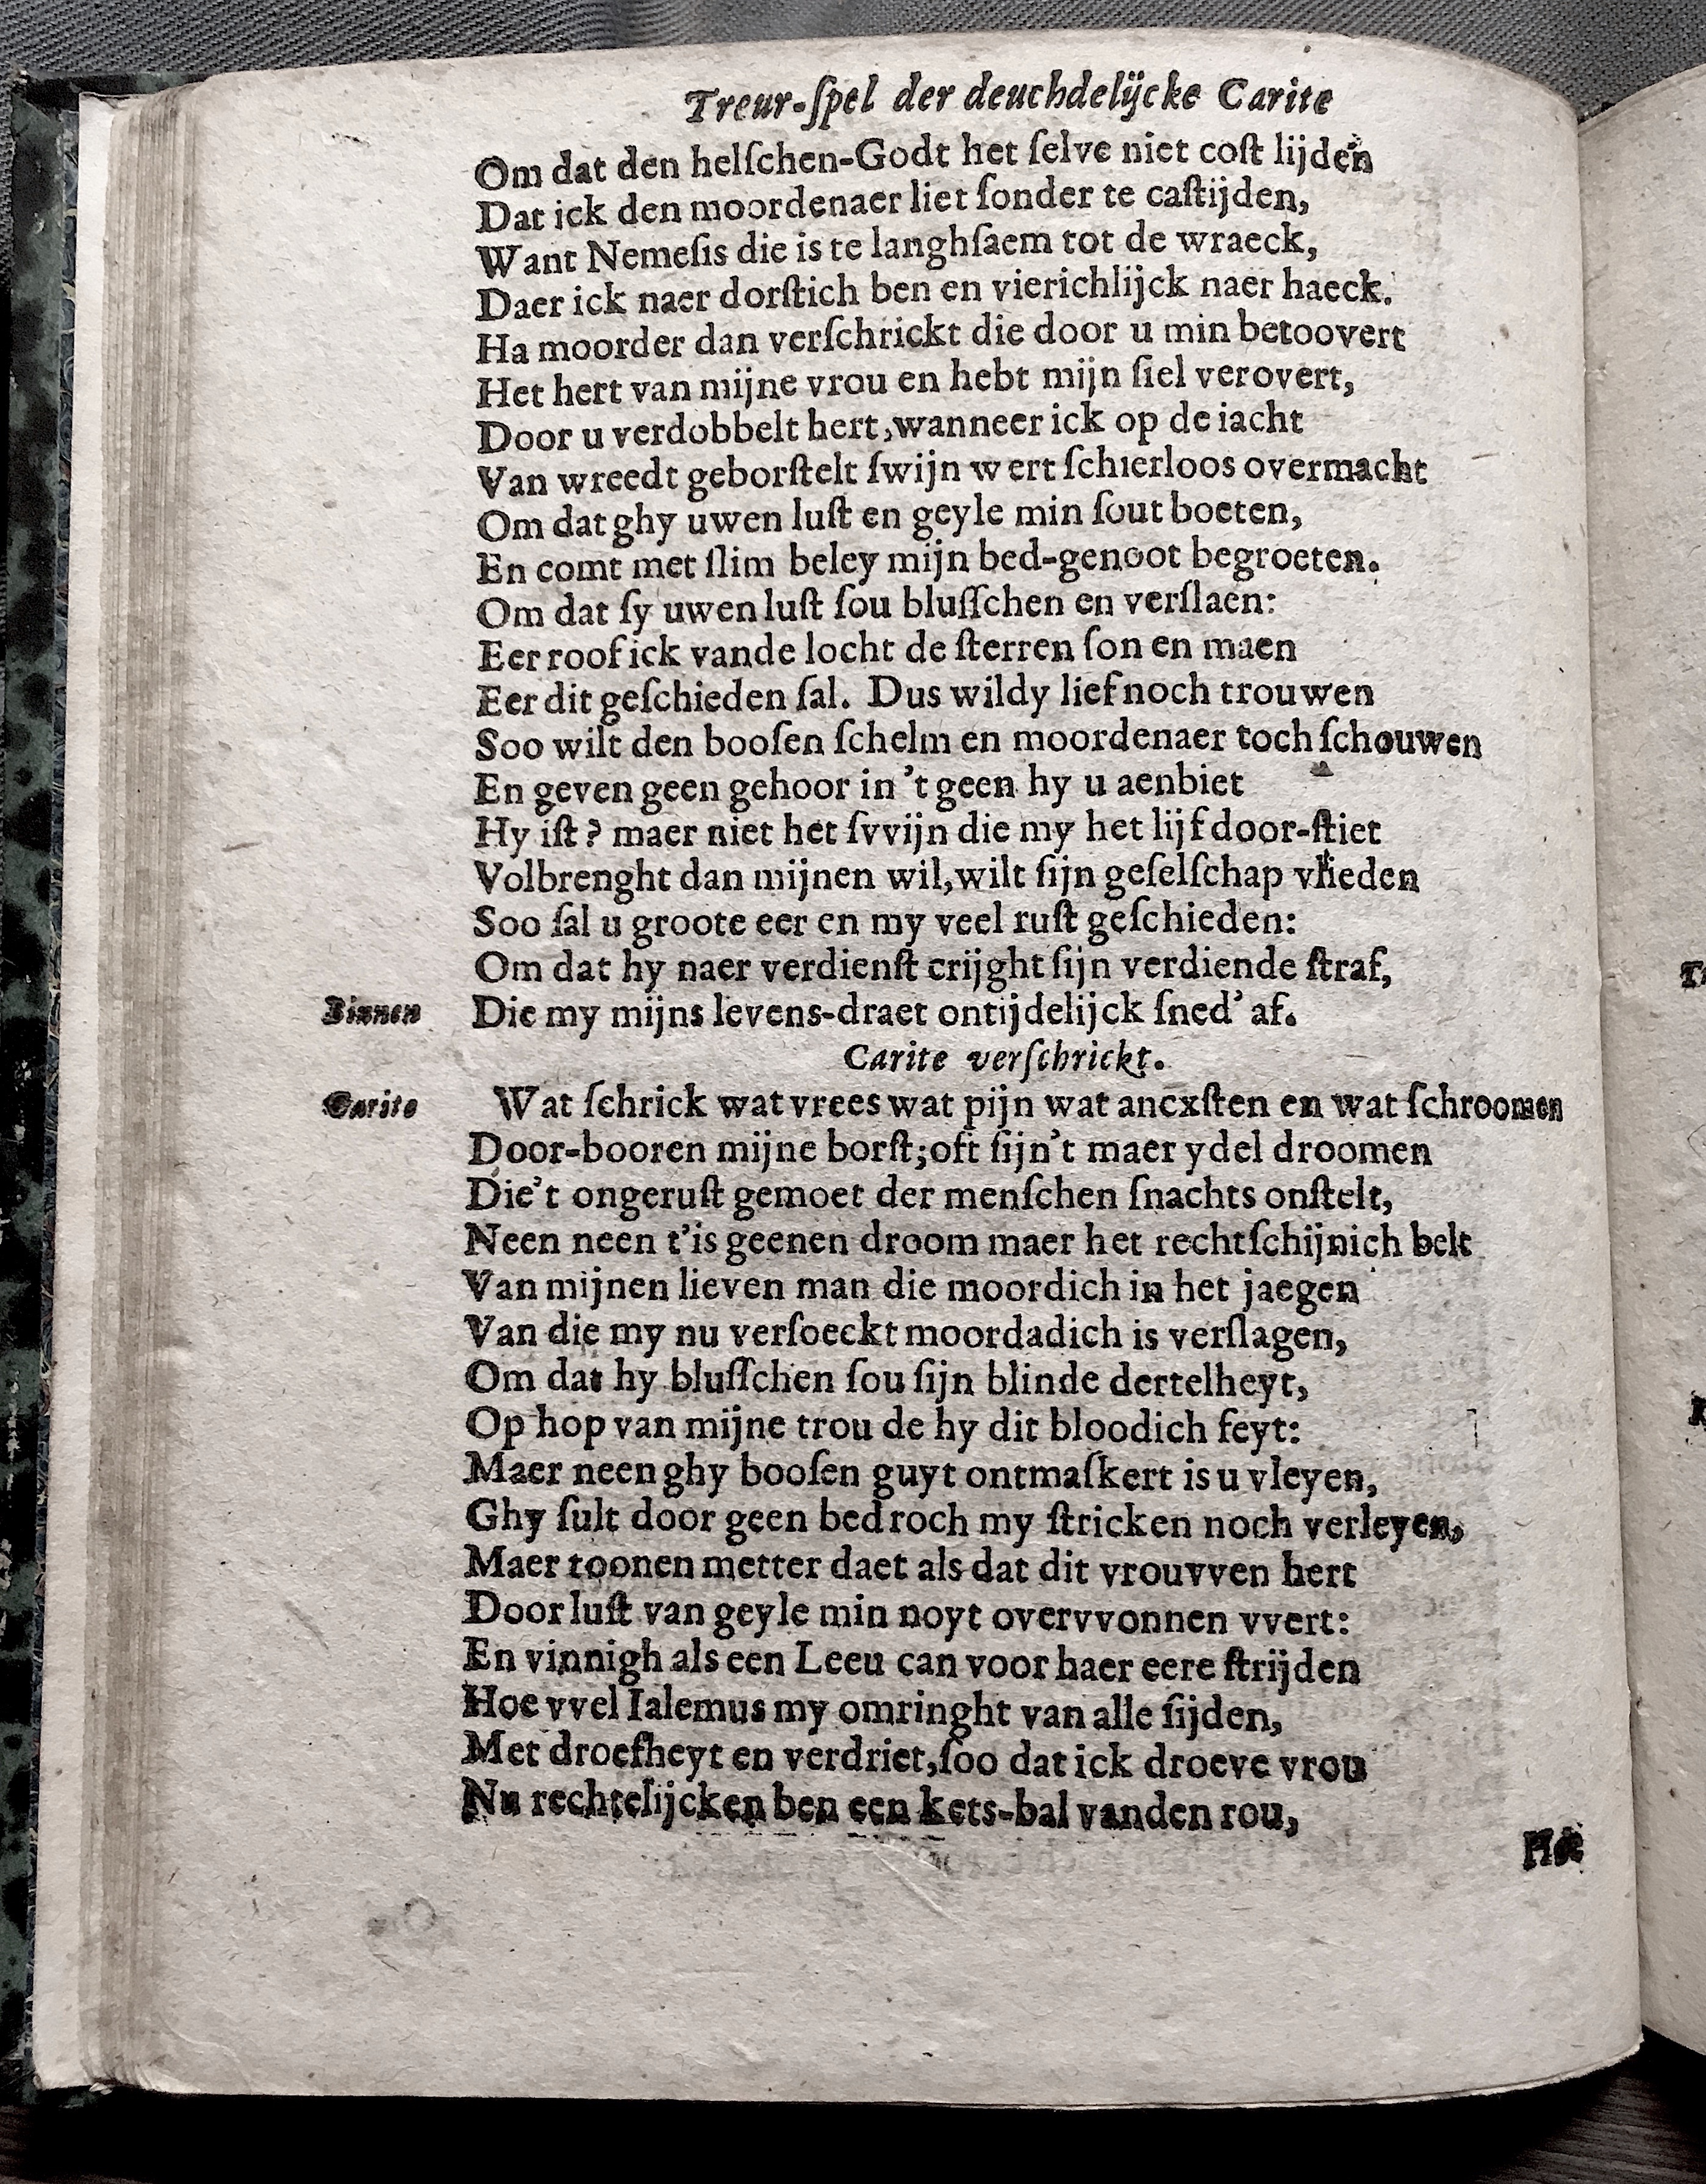 Treur-ſpel der deuchdelĳcke Carite
Om dat den helſchen-Godt het ſelve niet coſt lijden
Dat ick den moordenaer liet ſonder te caſtijden,
Want Nemeſis die is te langhſaem tot de wraeck,
Daer ick naer dorſtich ben en vierichlijck naer haeck.
Ha moorder dan verſchrickt die door u min betoovert
Het hert van mijne vrou en hebt mijn ſiel verovert,
Door u verdobbelt hert, wanneer ick op de iacht
Van wreedt geborſtelt ſwijn wert ſchierloos overmacht
Om dat ghy uwen luſt en geyle min ſout boeten,
En comt met ſlim beley mijn bed-genoot begroeten.
Om dat ſy uwen luſt ſou bluſſchen en verſlaen:
Eer roof ick vande locht de ſterren ſon en maen
Eer dit geſchieden ſal. Dus wildy lief noch trouwen
Soo wilt den booſen ſchelm en moordenaer toch ſchouwen
En geven geen gehoor in 't geen hy u aenbiet
Hy iſt? maer niet het ſvvijn die my het lijf door-ſtiet
Volbrenght dan mijnen wil, wilt ſijn geſelſchap vlieden
Soo ſal u groote eer en my veel ruſt geſchieden:
Om dat hy naer verdienſt crijght ſijn verdiende ſtraf,
Binnen Die my mijns levens-draet ontijdelijck ſned' af.
Carite verſchrickt.
Carite Wat ſchrick wat vrees wat pijn wat ancxſten en wat ſchroomen
Door-booren mijne borſt; oft ſijn't maer ydel droomen
Die't ongeruſt gemoet der menſchen ſnachts onſtelt,
Neen neen t'is geenen droom maer het rechtſchijnich belt
Van mijnen lieven man die moordich in het jaegen
Van die my nu verſoeckt moordadich is verſlagen,
Om dat hy bluſſchen ſou ſijn blinde dertelheyt,
Op hop van mijne trou de hy dit bloodich feyt:
Maer neen ghy booſen guyt ontmaſkert is u vleyen,
Ghy ſult door geen bedroch my ſtricken noch verleyen,
Maer toonen metter daet als dat dit vrouvven hert
Door luſt van geyle min noyt overvvonnen vvert:
En vinnigh als een Leeu can voor haer eere ſtrijden
Hoe vvel Ialemus my omringht van alle ſijden,
Met droefheyt en verdriet, ſoo dat ick droeve vrou
Nu rechtelijcken ben een kets-bal vanden rou,
Hoe